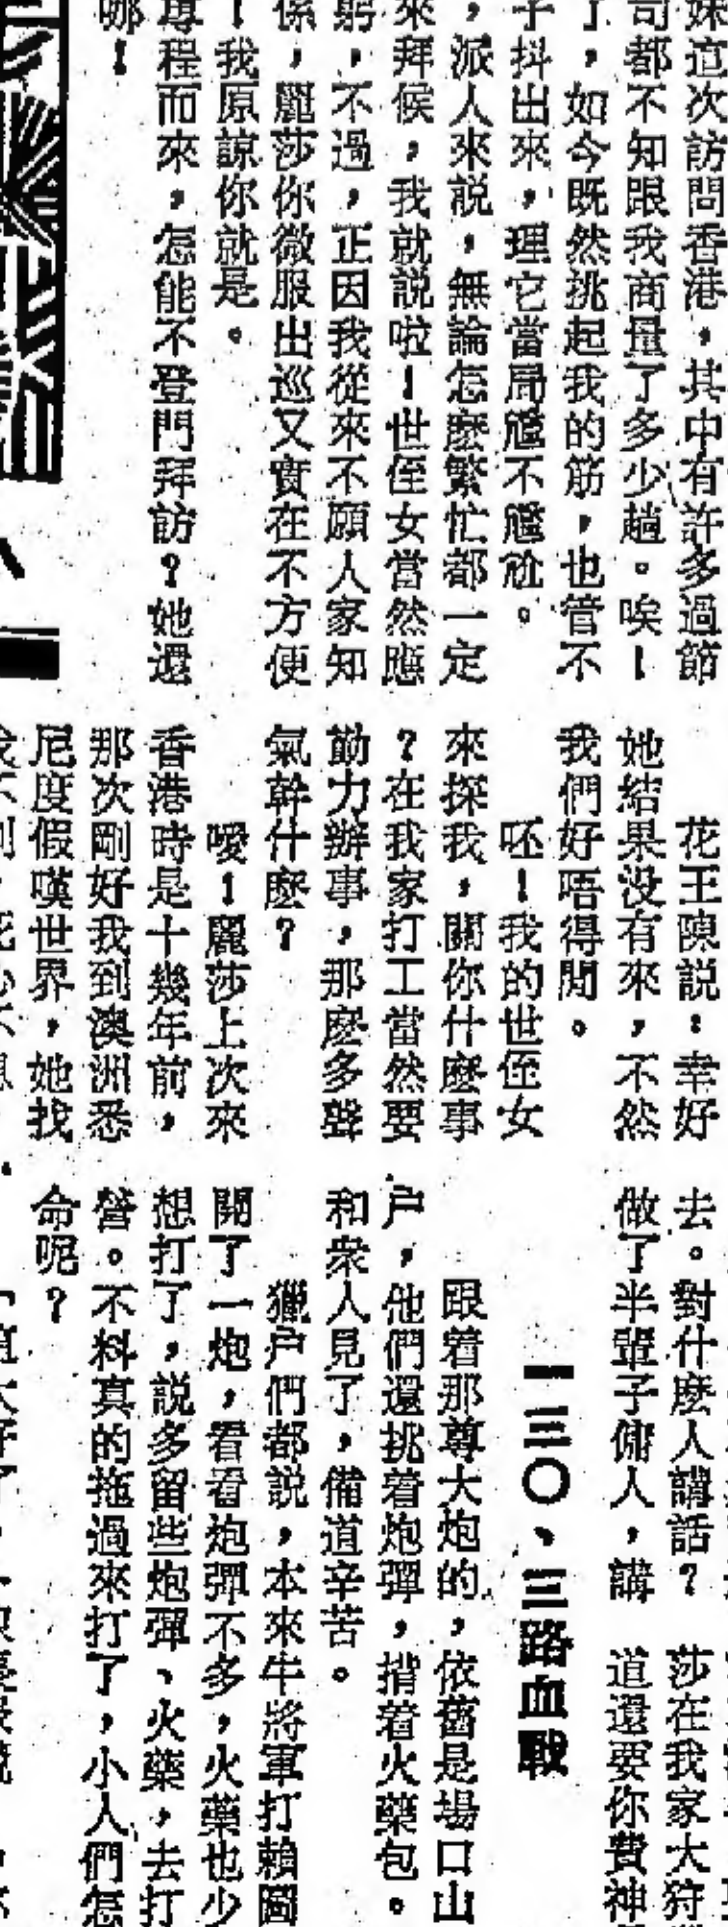 妹這次訪問香港，其中有許多過節
司都不知跟我商量了多少趟。唉！
了，如今既然挑起我的筋，也管不
子抖出來，理它當局尷不尷尬。
，派人來説，無論怎麽繁忙都一定
來拜候，我就説啦！世侄女當然應
躬，不過，正因我從來不願人家知
係，麗莎你微服出巡又實在不方便
！我原諒你就是。
專程而來，怎能不登門拜訪？她還
哪！
花王陳説：幸好
她結果没有來，不然
我們好唔得閒。
呸！我的世侄女
來探我，關你什麽事
？在我家打工當然要
勤力辦事，那麽多聲
氣幹什麽？
噯！麗莎上次來
香港時是十幾年前，
那次剛好我到澳洲悉
尼度假嘆世界，她找
去。對什麽人講話？
做了半輩子傭人，講
莎在我家大狩
道還要你費神
一三〇、三路血戰
跟着那尊大炮的，依舊是場口山
户，他們還挑着炮彈，揹着火藥包。
和衆人見了，備道辛苦。
獵户們都説，本來牛將軍打賴圖
開了一炮，看看炮彈不多，火藥也少
想打了，説多留些炮彈、火藥，去打
營。不料真的拖過來打了，小人們怎
命呢？